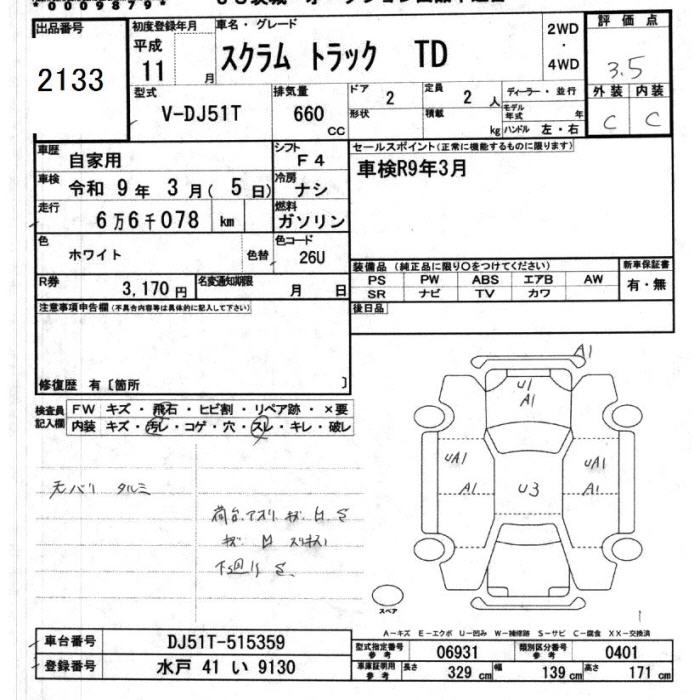 *0009879*
出品番号 初度登録年月 車名・グレード 評価点
2133 平成 11 月 スクラム トラック TD 2WD・4WD 3.5
型式 排気量 ドア 定員 ディーラー・並行 外装 内装
V-DJ51T 660 CC 2 2 人 モデル年式 年 C C
形状 積載 kg ハンドル 左・右
車歴 自家用 シフト F4 セールスポイント(正常に機能するものに限ります)
車検 令和 9 年 3 月 ( 5 日) 冷房 ナシ 車検R9年3月
走行 6万6千078 km 燃料 ガソリン
色 ホワイト 色替 色コード 26U
装備品 (純正品に限り○をつけてください) 新車保証書
R券 3,170 円 名変通知期限 月 日 PS PW ABS エアB AW 有・無
SR ナビ TV カワ
注意事項申告欄(不具合内容等は具体的に記入して下さい) 後日品
修復歴 有〔箇所 〕
A1
U1
A1
検査員記入欄 FW キズ・飛石・ヒビ割・リペア跡・×要
内装 キズ・汚レ・コゲ・穴・スレ・キレ・破レ
UA1 UA1
A1 U3 A1
天バリ タルミ
荷台.アオリ キズ.凹.S
下回り S
スペア
A-キズ E-エクボ U-凹み W-補修跡 S-サビ C-腐食 XX-交換済
車台番号 DJ51T-515359 型式指定番号 参考 06931 類別区分番号 参考 0401
登録番号 水戸 41 い 9130 車庫証明用 参考 長さ 329 cm 幅 139 cm 高さ 171 cm